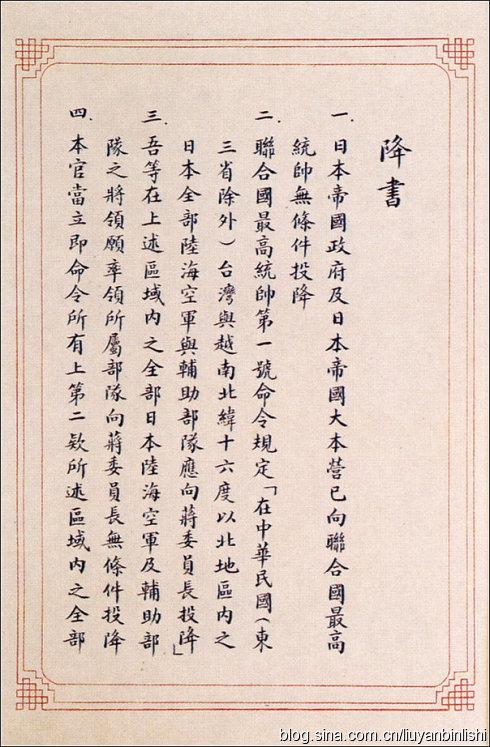 降書
一. 日本帝國政府及日本帝國大本營已向聯合國最高
統帥無條件投降
二. 聯合國最高統帥第一號命令規定「在中華民國(東
三省除外)台灣與越南北緯十六度以北地區內之
日本全部陸海空軍與輔助部隊應向蔣委員長投降」
三. 吾等在上述區域內之全部日本陸海空軍及輔助部
隊之將領願率領所屬部隊向蔣委員長無條件投降
四. 本官當立即命令所有上第二欵所述區域內之全部
blog.sina.com.cn/liuyanbinlishi